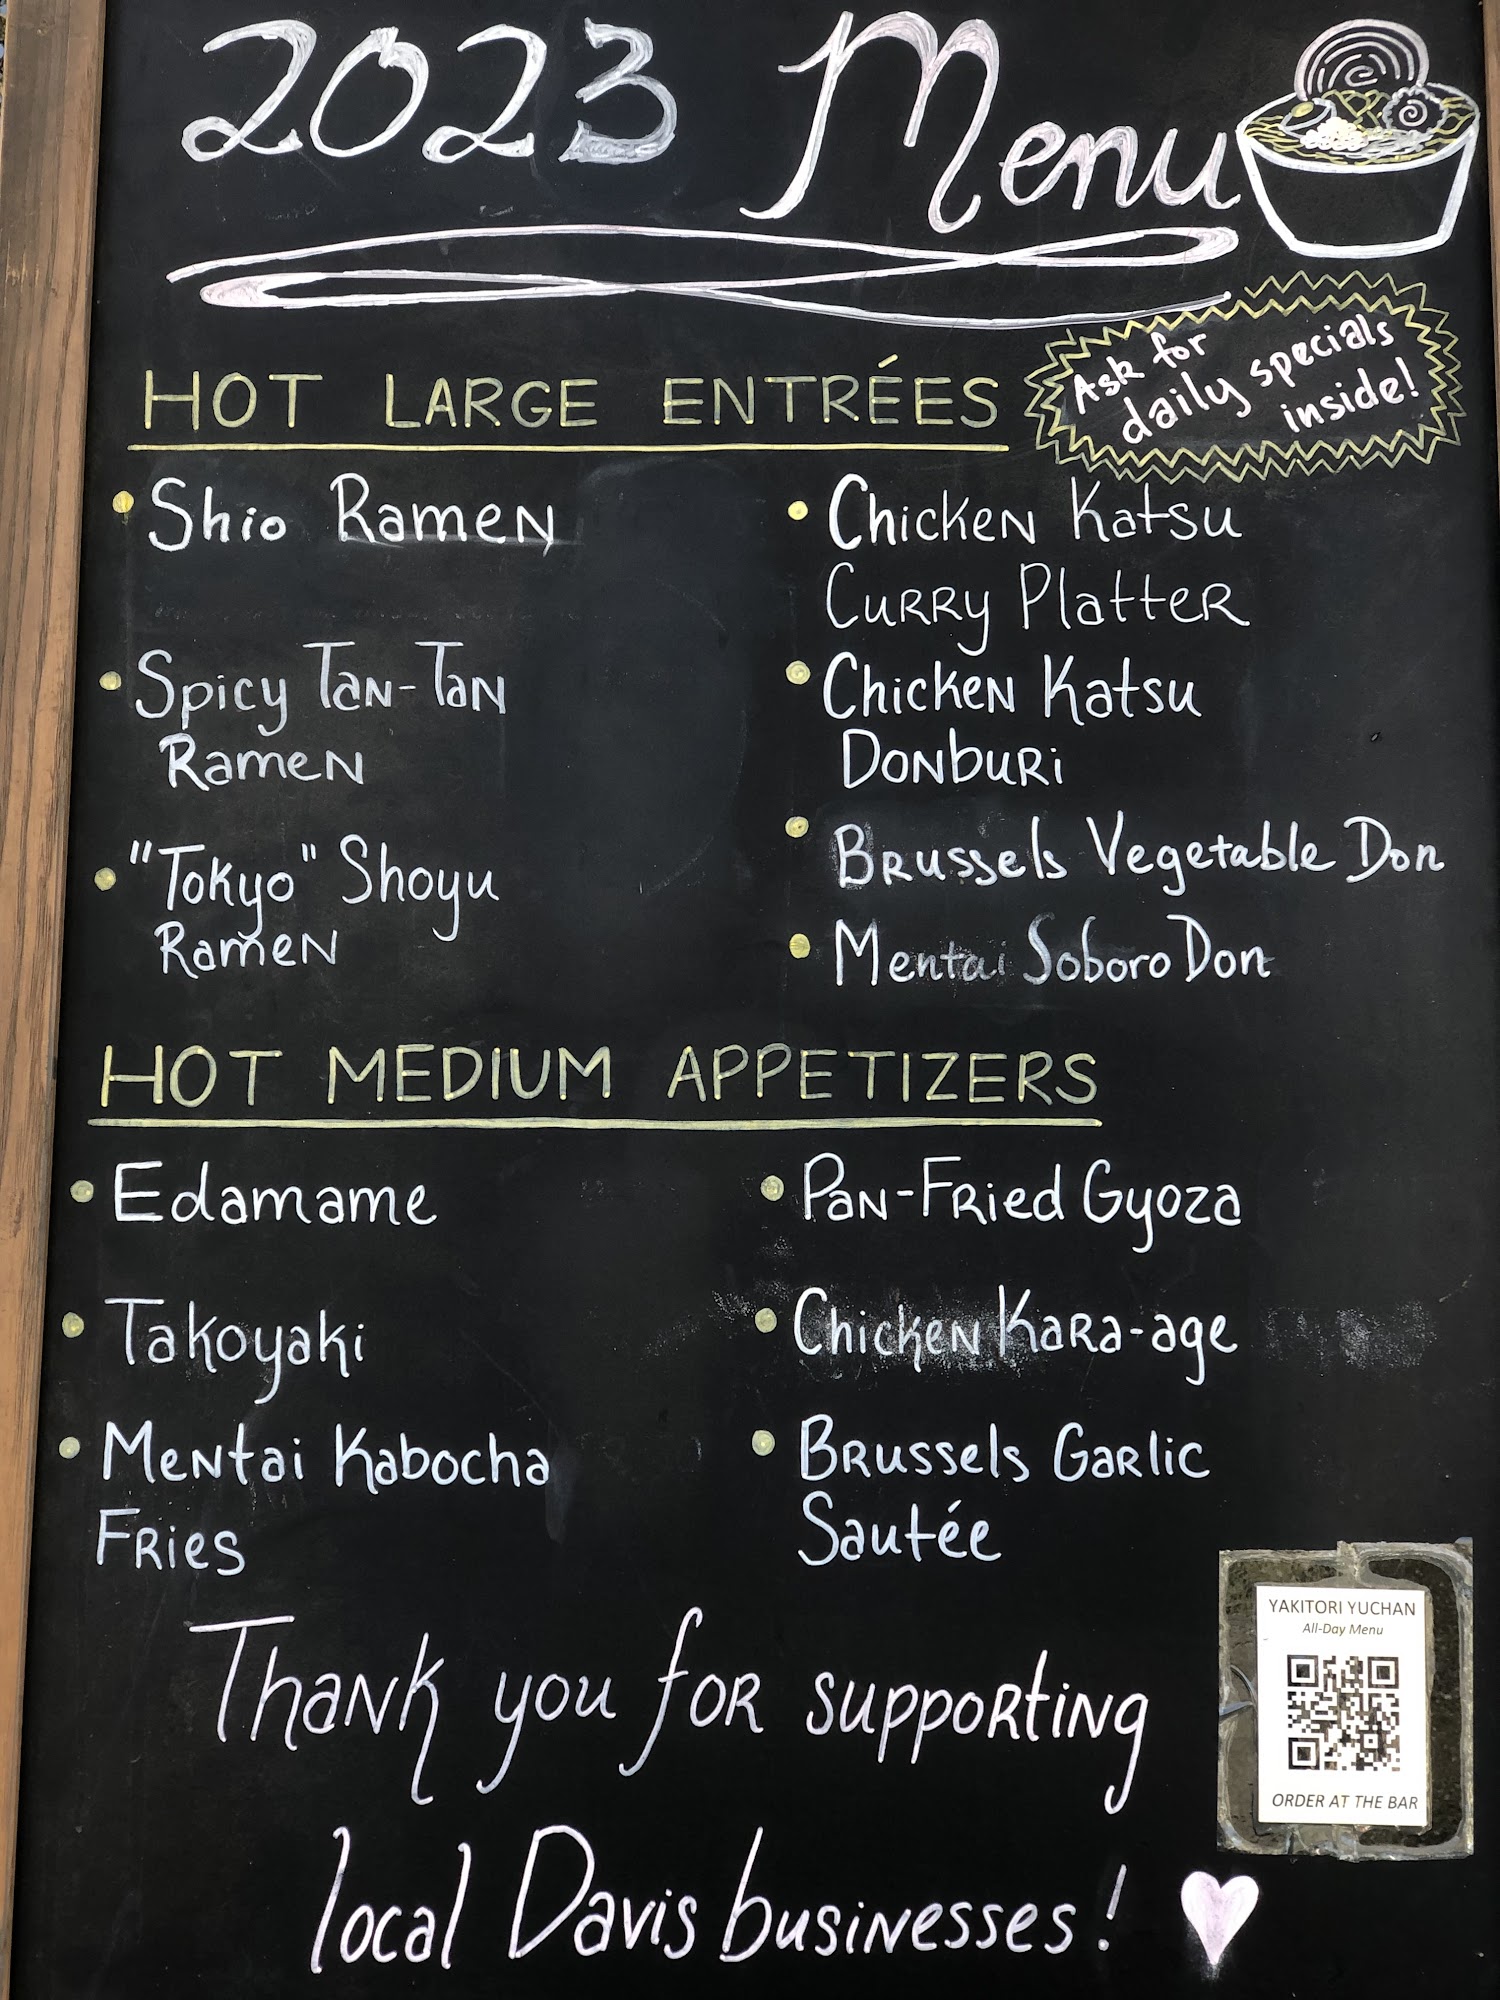 2023 Menu
Ask for
daily specials
inside!
HOT LARGE ENTRÉES
Shio Ramen
Spicy Tan-Tan
Ramen
"Tokyo" Shoyu
Ramen
Chicken Katsu
Curry Platter
Chicken Katsu
Donburi
Brussels Vegetable Don
Mentai Soboro Don
HOT MEDIUM APPETIZERS
Edamame
Takoyaki
Mentai Kabocha
Fries
Pan-Fried Gyoza
Chicken Kara-age
Brussels Garlic
Sautée
Thank you for supporting
local Davis businesses!
YAKITORI YUCHAN
All-Day Menu
ORDER AT THE BAR